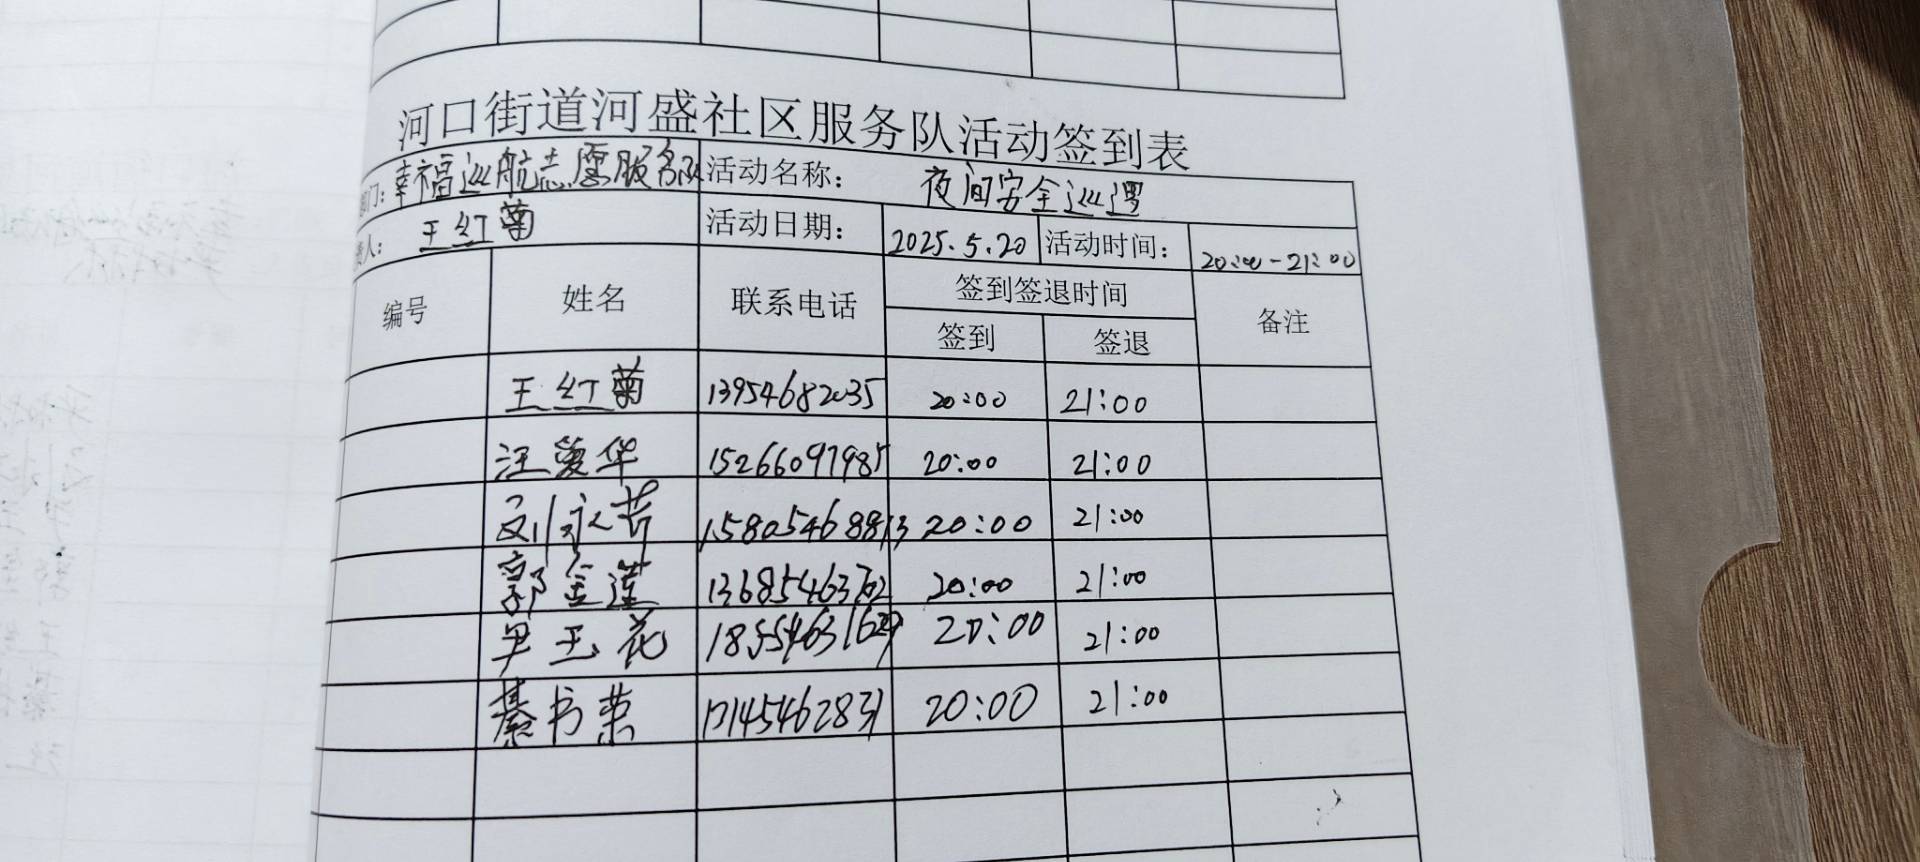 河口街道河盛社区服务队活动签到表
门: 幸福巡航志愿服务队 活动名称: 夜间安全巡逻
人: 王红菊 活动日期: 2025.5.20 活动时间: 20:00-21:00
编号 姓名 联系电话 签到签退时间 备注
签到 签退
王红菊 13954682035 20:00 21:00
汪爱华 15266097985 20:00 21:00
刘永芳 15805468813 20:00 21:00
郭金莲 13685463702 20:00 21:00
尹玉花 18554631629 20:00 21:00
綦书荣 20:00 21:00